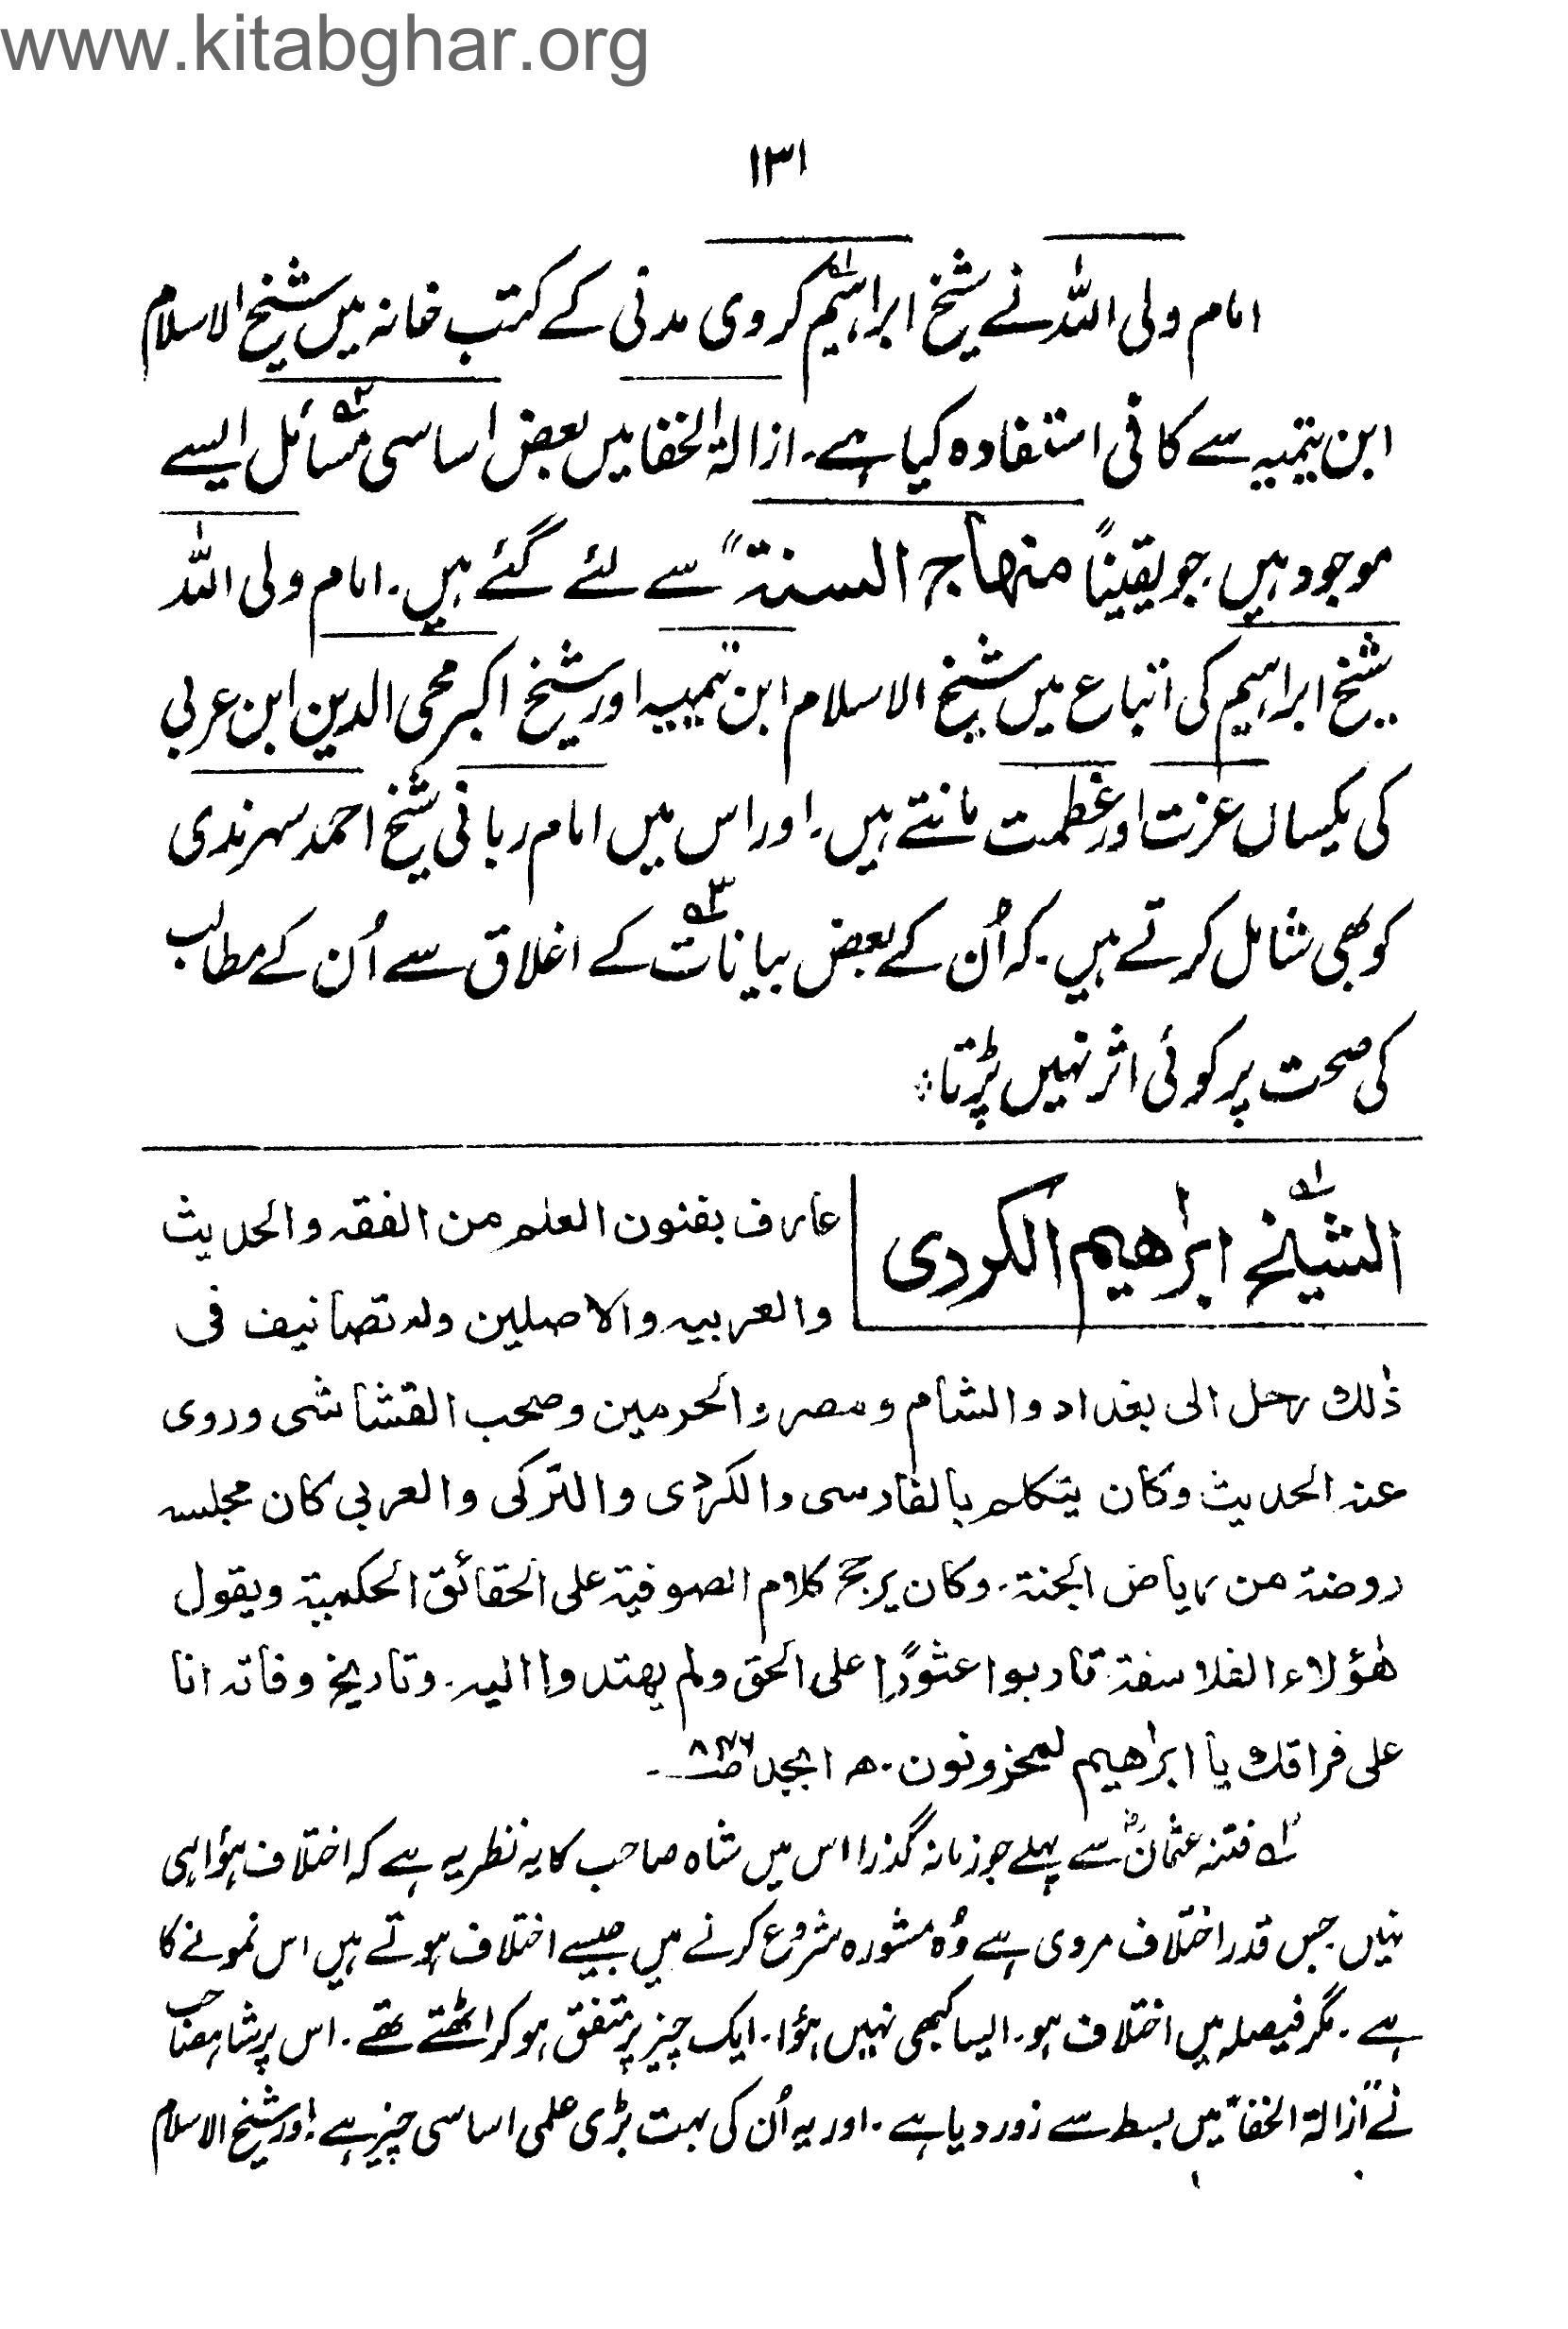 www.kitabghar.org
۱۳۱
امام ولی اللہ نے شیخ ابراہیم۱؎ کروی مدنی کے کتب خانہ میں شیخ الاسلام
ابن تیمیہ سے کافی استفادہ کیا ہے۔ ازالۃ الخفا میں بعض اساسی مسائل۲؎ ایسے
موجود ہیں۔ جو یقیناً منھاج السنۃ" سے لئے گئے ہیں۔ امام ولی اللہ
شیخ ابراہیم کی اتباع میں شیخ الاسلام ابن تیمیہ اور شیخ اکبر محی الدین ابن عربی
کی یکساں عزت اور عظمت مانتے ہیں۔ اور اس میں امام ربانی شیخ احمد سہرندی
کو بھی شامل کرتے ہیں۔ کہ اُن کے بعض بیانات۳؎ کے اغلاق سے اُن کے مطالب
کی صحت پر کوئی اثر نہیں پڑتا۔
۱؎ الشیخ ابراھیم الکردی
عارف بفنون العلم من الفقہ والحدیث
والعربیہ والاصلین ولہ تصانیف فی
ذٰلك رحل الی بغداد والشام ومصر والحرمین وصحب القشاشی وروی
عنہ الحدیث وکان یتکلم بالفارسی والکردی والترکی والعربی کان مجلسہ
روضۃ من ریاض الجنۃ۔ وکان یرجح کلام الصوفیۃ علی الحقائق الحکمیۃ ویقول
ھٰؤلاء الفلاسفۃ قاربوا عثورًا علی الحق ولم یھتدوا الیہ۔ وتاریخ وفاتہ انا
علی فراقك یا ابراھیم لمحزونون۔ ھ ابجد ص۸۴۷۔
۲؎ فتنہ عثمانؓ سے پہلے جو زمانہ گذرا اس میں شاہ صاحب کا یہ نظریہ ہے کہ اختلاف ہؤا ہی
نہیں۔ جس قدر اختلاف مروی ہے وُہ مشورہ شروع کرنے میں جیسے اختلاف ہوتے ہیں اس نمونے کا
ہے۔ مگر فیصلہ میں اختلاف ہو۔ ایسا کبھی نہیں ہؤا۔ ایک چیز پر متفق ہو کر اٹھتے تھے۔ اس پر شاہصاحب
نے "ازالۃ الخفا" میں بسط سے زور دیا ہے۔ اور یہ اُن کی بہت بڑی علمی اساسی چیز ہے۔ اور شیخ الاسلام